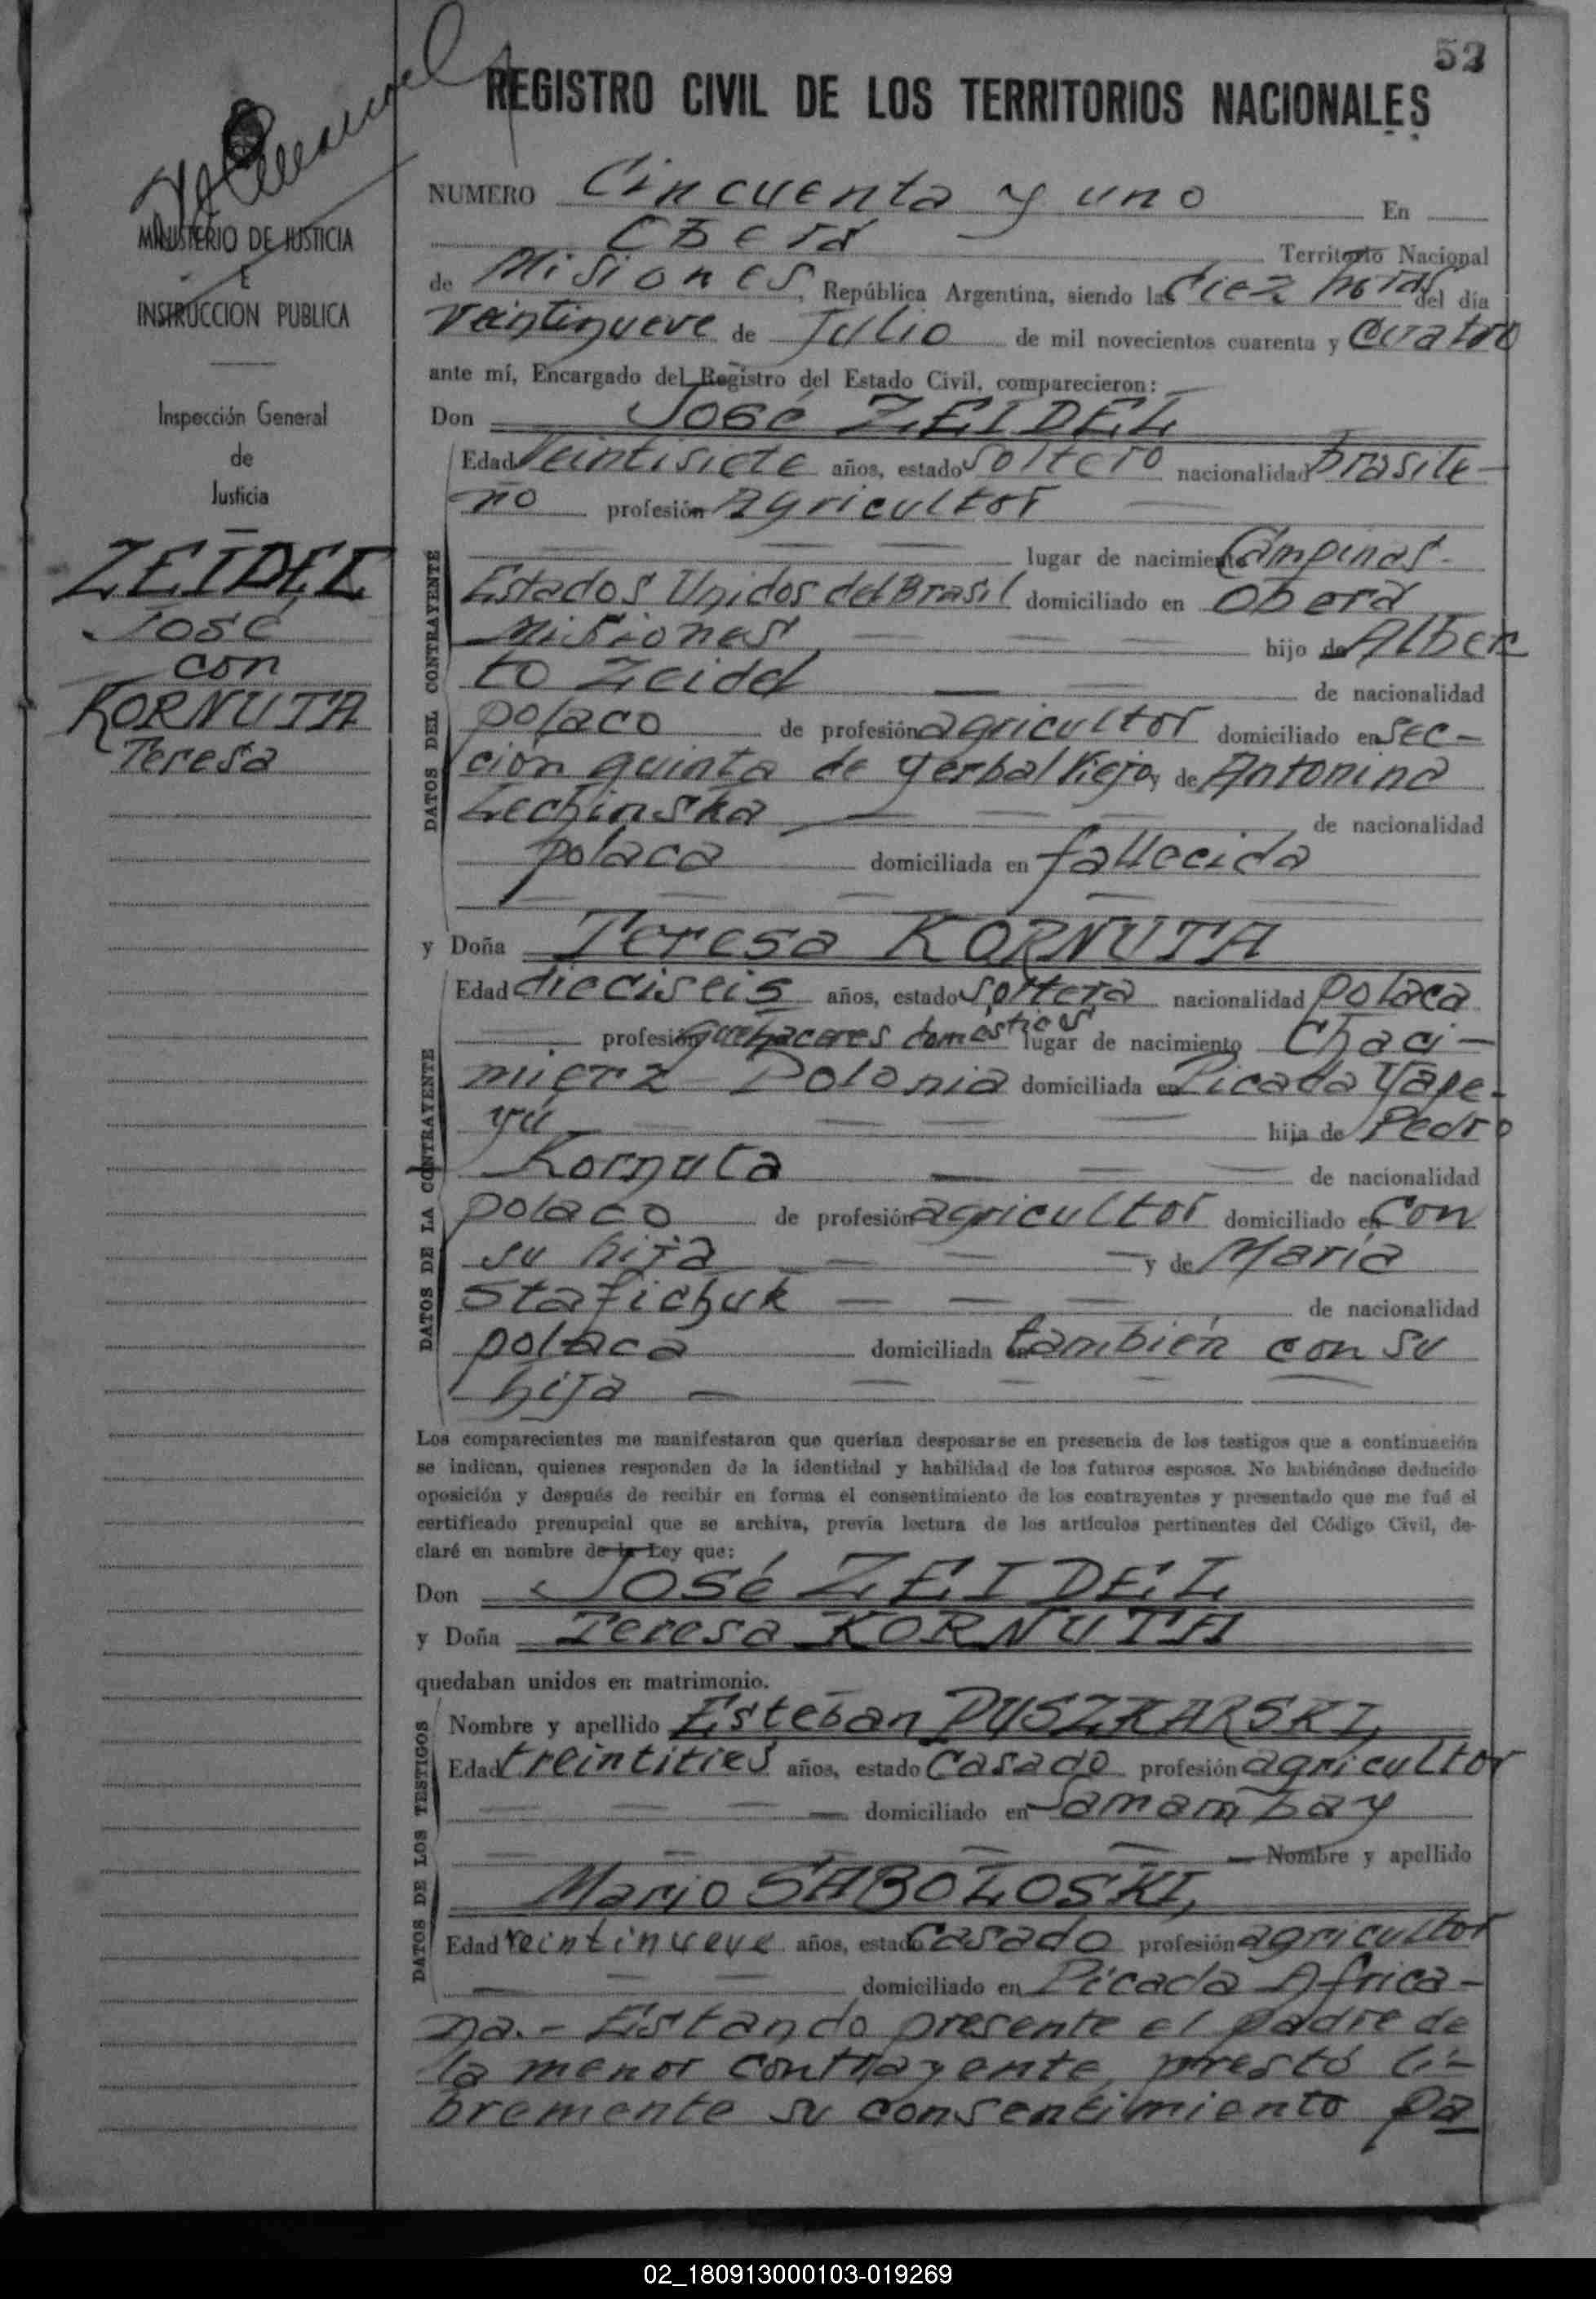 52
REGISTRO CIVIL DE LOS TERRITORIOS NACIONALES
MINISTERIO DE JUSTICIA
E
INSTRUCCION PUBLICA
Inspección General
de
Justicia
ZEIDEL
José
con
KORNUTA
Teresa
NUMERO Cincuenta y uno En
Oberá Territorio Nacional
de Misiones, República Argentina, siendo las diez horas del día
veintinueve de Julio de mil novecientos cuarenta y cuatro
ante mí, Encargado del Registro del Estado Civil, comparecieron:
Don José ZEIDEL
DATOS DEL CONTRAYENTE
Edad Veintisiete años, estado soltero nacionalidad brasile-
ño profesión Agricultor
lugar de nacimiento Campinas-
Estados Unidos del Brasil domiciliado en Oberá
Misiones hijo de Alber
to Zeidel de nacionalidad
polaco de profesión agricultor domiciliado en sec-
ción quinta de Yerbal Viejo y de Antonina
Zechinska de nacionalidad
polaca domiciliada en fallecida
y Doña Teresa KORNUTA
DATOS DE LA CONTRAYENTE
Edad dieciseis años, estado soltera nacionalidad polaca
profesión quehaceres domésticos lugar de nacimiento Chaci-
mierz Polonia domiciliada en Picada Yape-
yú hija de Pedro
Kornuta de nacionalidad
polaco de profesión agricultor domiciliado en con
su hija y de María
Stafichuk de nacionalidad
polaca domiciliada en también con su
hija
Los comparecientes me manifestaron que querían desposarse en presencia de los testigos que a continuación
se indican, quienes responden de la identidad y habilidad de los futuros esposos. No habiéndose deducido
oposición y después de recibir en forma el consentimiento de los contrayentes y presentado que me fué el
certificado prenupcial que se archiva, previa lectura de los artículos pertinentes del Código Civil, de-
claré en nombre de la Ley que:
Don José ZEIDEL
y Doña Teresa KORNUTA
quedaban unidos en matrimonio.
DATOS DE LOS TESTIGOS
Nombre y apellido Esteban PUSZKARSKI,
Edad treintitres años, estado casado profesión agricultor
domiciliado en Samambay
Nombre y apellido
Mario SABOLOSKI,
Edad veintinueve años, estado casado profesión agricultor
domiciliado en Picada Africa-
na.- Estando presente el padre de
la menor contrayente, prestó li-
bremente su consentimiento pa
02_180913000103-019269